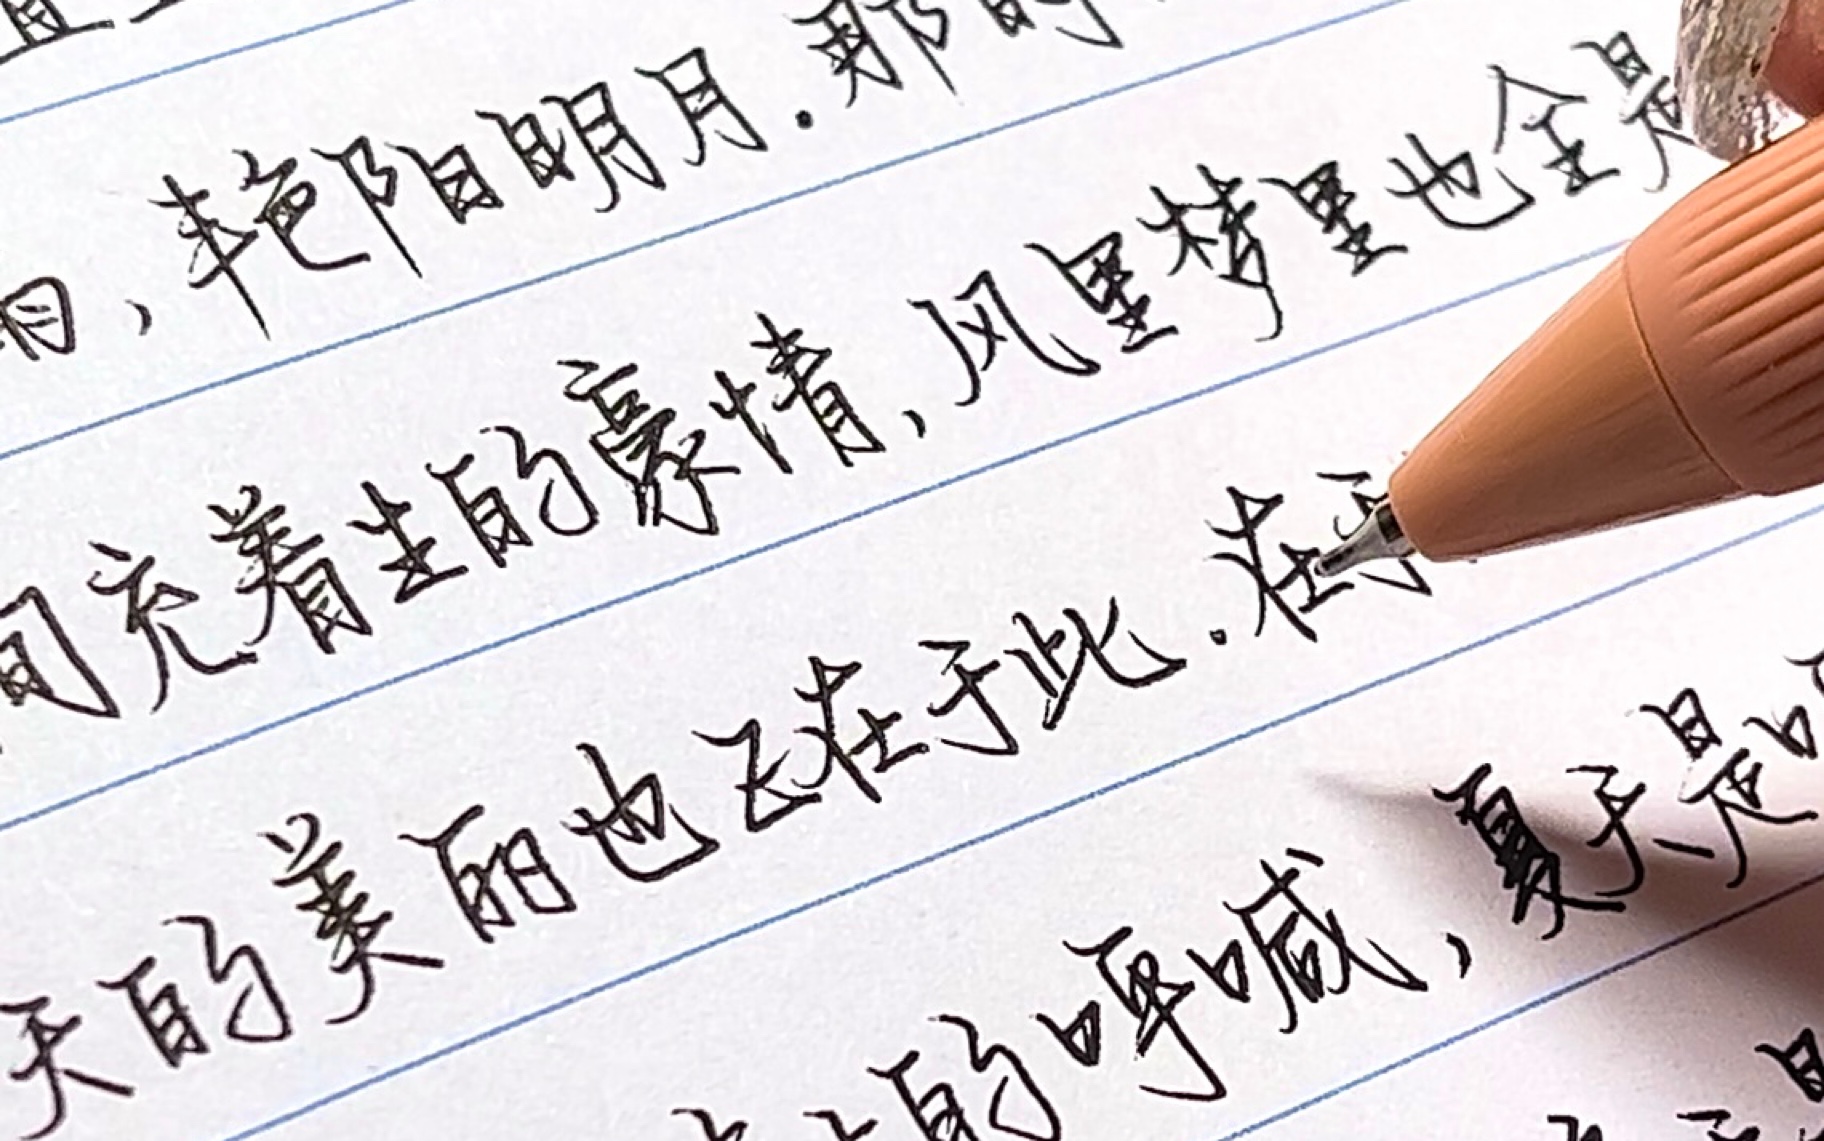 、艳阳明月.那时
间充着生的豪情,风里梦里也全是
天的美丽也正在于此.在于
的呼喊,夏天是